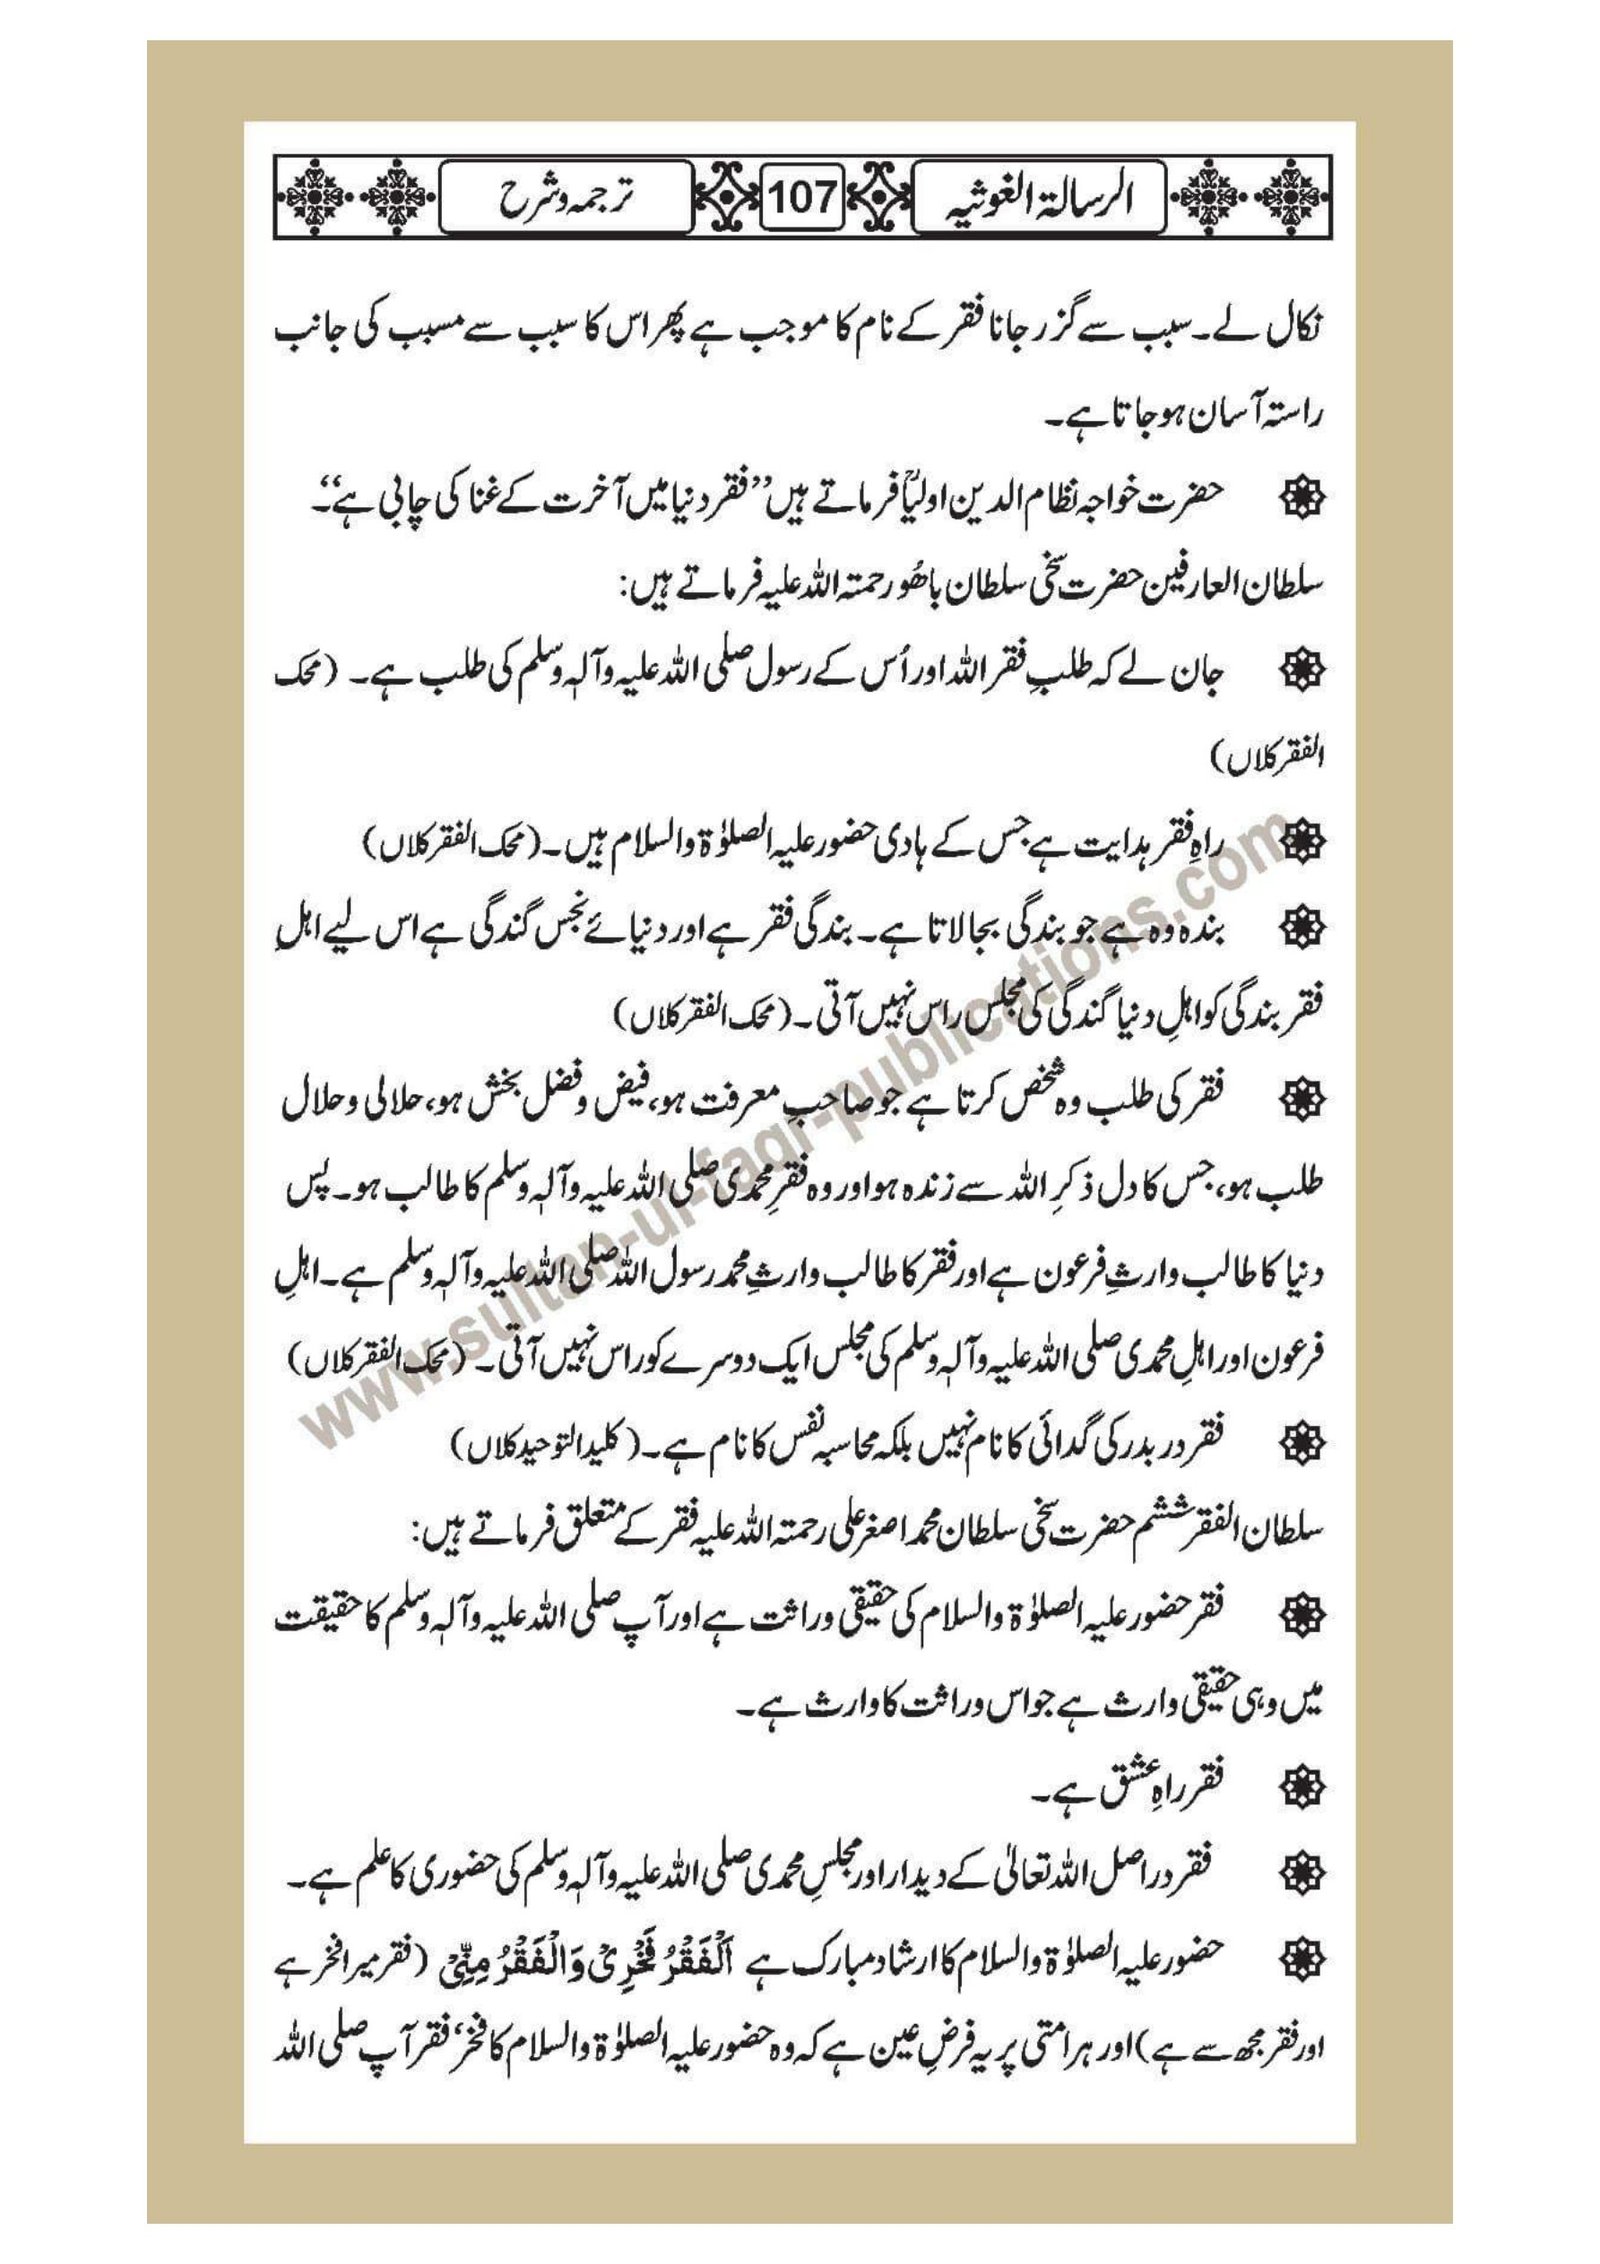 الرسالۃ الغوثیہ 107 ترجمہ و شرح
نکال لے۔ سبب سے گزر جانا فقر کے نام کا موجب ہے پھر اس کا سبب سے مسبب کی جانب
راستہ آسان ہو جاتا ہے۔
حضرت خواجہ نظام الدین اولیاؒ فرماتے ہیں ’’فقر دنیا میں آخرت کے غنا کی چابی ہے‘‘۔
سلطان العارفین حضرت سخی سلطان باھُو رحمتہ اللہ علیہ فرماتے ہیں:
جان لے کہ طلبِ فقر اللہ اور اُس کے رسول صلی اللہ علیہ وآلہٖ وسلم کی طلب ہے۔ (محک
الفقر کلاں)
راہِ فقر ہدایت ہے جس کے ہادی حضور علیہ الصلوٰۃ والسلام ہیں۔ (محک الفقر کلاں)
بندہ وہ ہے جو بندگی بجا لاتا ہے۔ بندگی فقر ہے اور دنیائے نجس گندگی ہے اس لیے اہلِ
فقر بندگی کو اہلِ دنیا گندگی کی مجلس راس نہیں آتی۔ (محک الفقر کلاں)
فقر کی طلب وہ شخص کرتا ہے جو صاحبِ معرفت ہو، فیض و فضل بخش ہو، حلالی و حلال
طلب ہو، جس کا دل ذکرِ اللہ سے زندہ ہو اور وہ فقرِ محمدی صلی اللہ علیہ وآلہٖ وسلم کا طالب ہو۔ پس
دنیا کا طالب وارثِ فرعون ہے اور فقر کا طالب وارثِ محمد رسول اللہ صلی اللہ علیہ وآلہٖ وسلم ہے۔ اہلِ
فرعون اور اہلِ محمدی صلی اللہ علیہ وآلہٖ وسلم کی مجلس ایک دوسرے کو راس نہیں آتی۔ (محک الفقر کلاں)
فقر در بدر کی گدائی کا نام نہیں بلکہ محاسبہ نفس کا نام ہے۔ (کلید التوحید کلاں)
سلطان الفقر ششم حضرت سخی سلطان محمد اصغر علی رحمتہ اللہ علیہ فقر کے متعلق فرماتے ہیں:
فقر حضور علیہ الصلوٰۃ والسلام کی حقیقی وراثت ہے اور آپ صلی اللہ علیہ وآلہٖ وسلم کا حقیقت
میں وہی حقیقی وارث ہے جو اس وراثت کا وارث ہے۔
فقر راہِ عشق ہے۔
فقر دراصل اللہ تعالیٰ کے دیدار اور مجلسِ محمدی صلی اللہ علیہ وآلہٖ وسلم کی حضوری کا علم ہے۔
حضور علیہ الصلوٰۃ والسلام کا ارشاد مبارک ہے اَلْفَقْرُ فَخْرِیْ وَالْفَقْرُ مِنِّیْ (فقر میرا فخر ہے
اور فقر مجھ سے ہے) اور ہر امتی پر یہ فرضِ عین ہے کہ وہ حضور علیہ الصلوٰۃ والسلام کا فخر‘ فقر آپ صلی اللہ
www.sultan-ul-faqr-publications.com